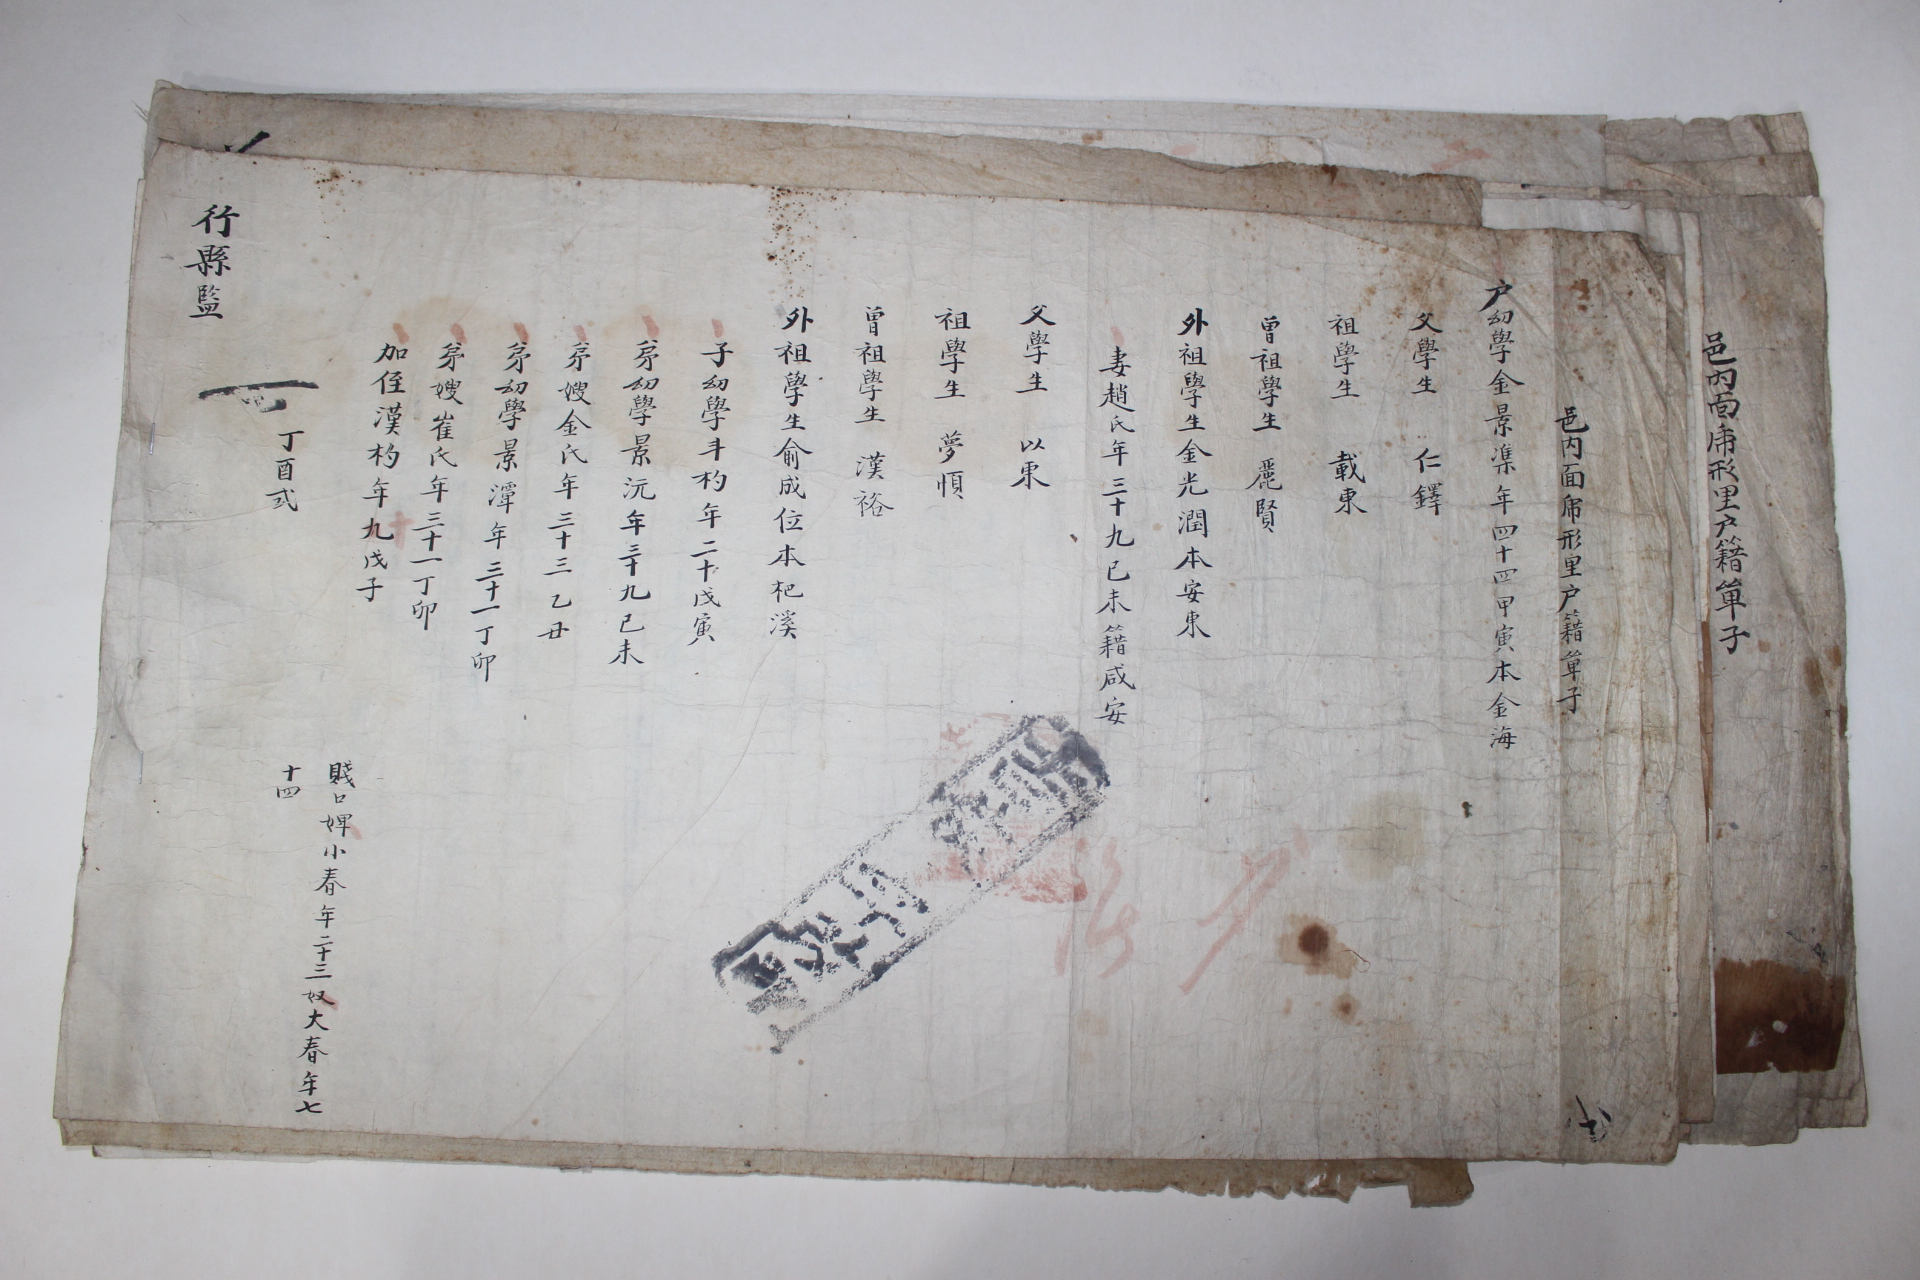 邑內面席形里户籍單子
邑內面席形里户籍單子
户幼學金景準年四十四甲寅本金海
父學生 仁鐸
祖學生 載東
曾祖學生 麗賢
外祖學生金光潤本安東
妻趙氏年三十九己未籍咸安
父學生 以東
祖學生 夢順
曾祖學生 漢裕
外祖學生俞成位本杞溪
子幼學斗杓年二十戊寅
弟幼學景沅年三十九己未
弟嫂金氏年三十三乙丑
弟幼學景潭年三十一丁卯
弟嫂崔氏年三十一丁卯
加侄漢杓年九戊子
賤口婢小春年二十三奴大春年七
十四
丁酉式
行縣監